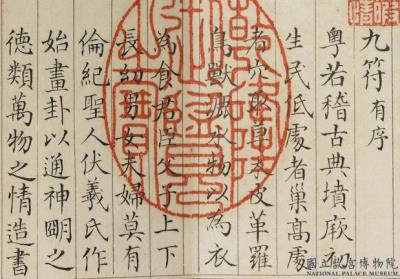 九符有序
粵若稽古典墳厥初
生民低處者巢高處
者穴取草木皮革羅
鳥獸
水物以為衣
為食君臣父子上下
長幼男女夫婦莫有
倫紀聖人伏羲氏作
始畫卦以通神明之
德類萬物之情造書
國立故宮博物院
NATIONAL PALACE MUSEUM